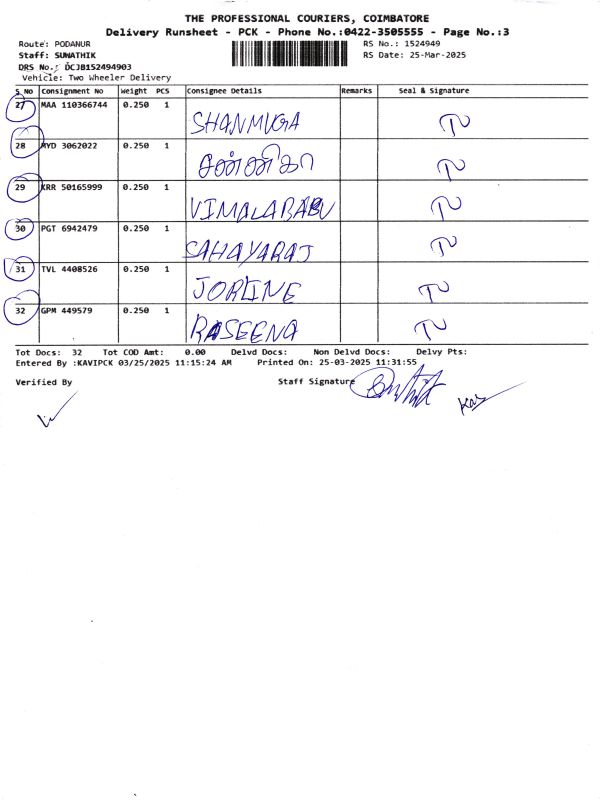 THE PROFESSIONAL COURIERS, COIMBATORE
Delivery Runsheet - PCK - Phone No.:0422-3505555 - Page No.:3
Route: PODANUR RS No.: 1524949
Staff: SUNATHIK RS Date: 25-Mar-2025
DRS No.: DCJB152494903
Vehicle: Two Wheeler Delivery
S.No Consignment No Weight PCS Consignee Details Remarks Seal & Signature
27 MAA 110366744 0.250 1
SHANMUGA
28 MYD 3062022 0.250 1
29 KRR 50165999 0.250 1
VIMALABABU
30 PGT 6942479 0.250 1
SAHAYARAJ
31 TVL 4408526 0.250 1
JORLINE
32 GPM 449579 0.250 1
RASEENA
Tot Docs: 32 Tot COD Amt: 0.00 Delvd Docs: Non Delvd Docs: Delvy Pts:
Entered By :KAVIPCK 03/25/2025 11:15:24 AM Printed On: 25-03-2025 11:31:55
Verified By Staff Signature